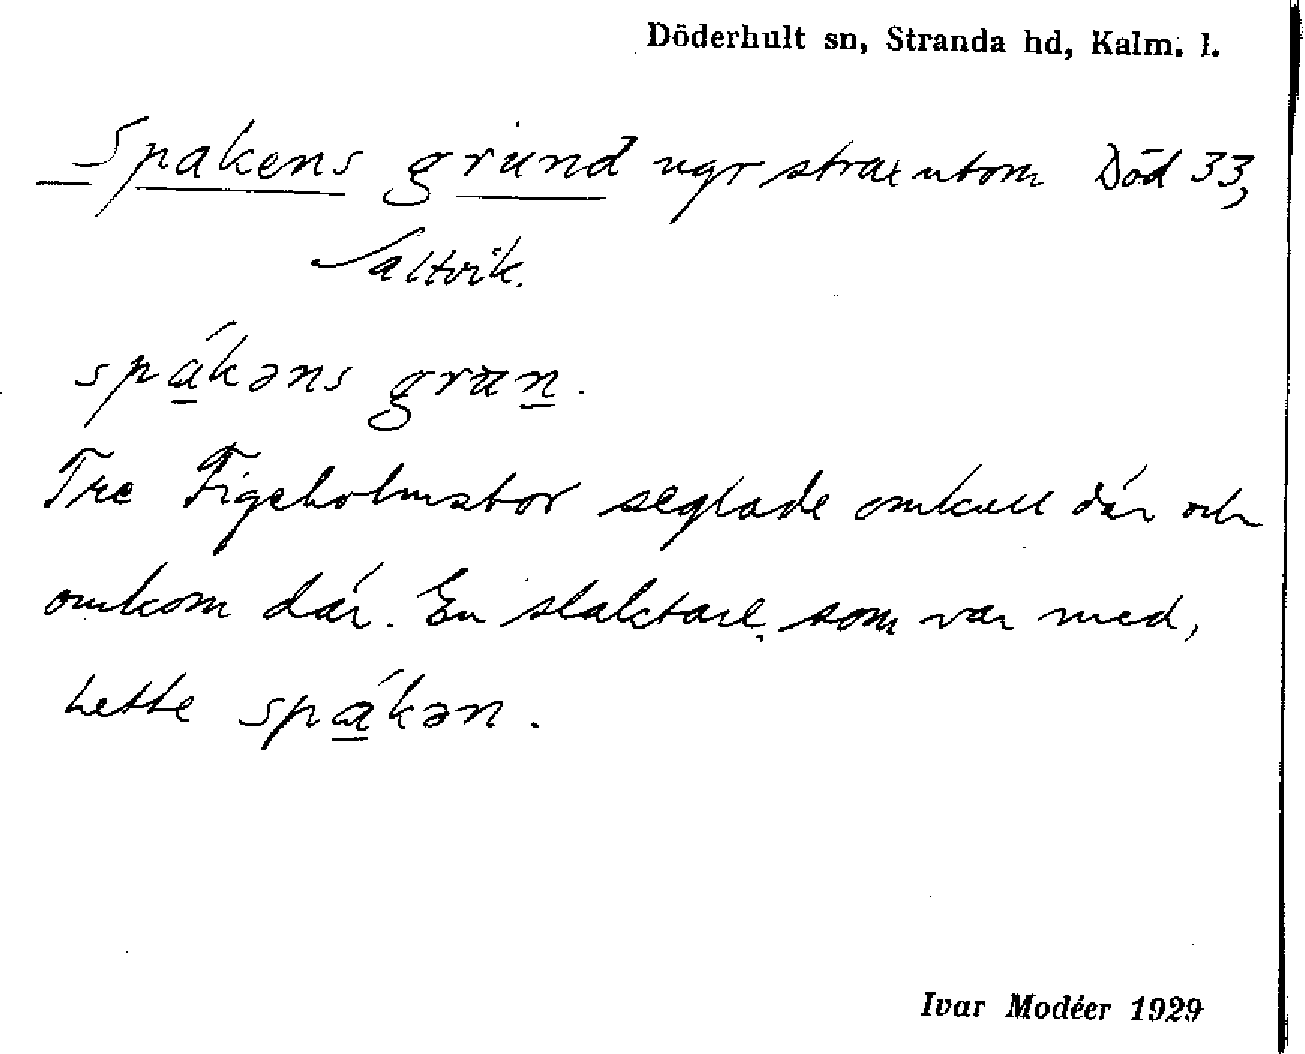 Döderhult sn, Stranda hd, Kalm. l.
Spakens grund ugr strax utom Död 33,
Saltvik.
spákəns grun.
Tre Figeholmsbor seglade omkull där och
omkom där. En slaktare, som var med,
hette spákən.
Ivar Modéer 1929